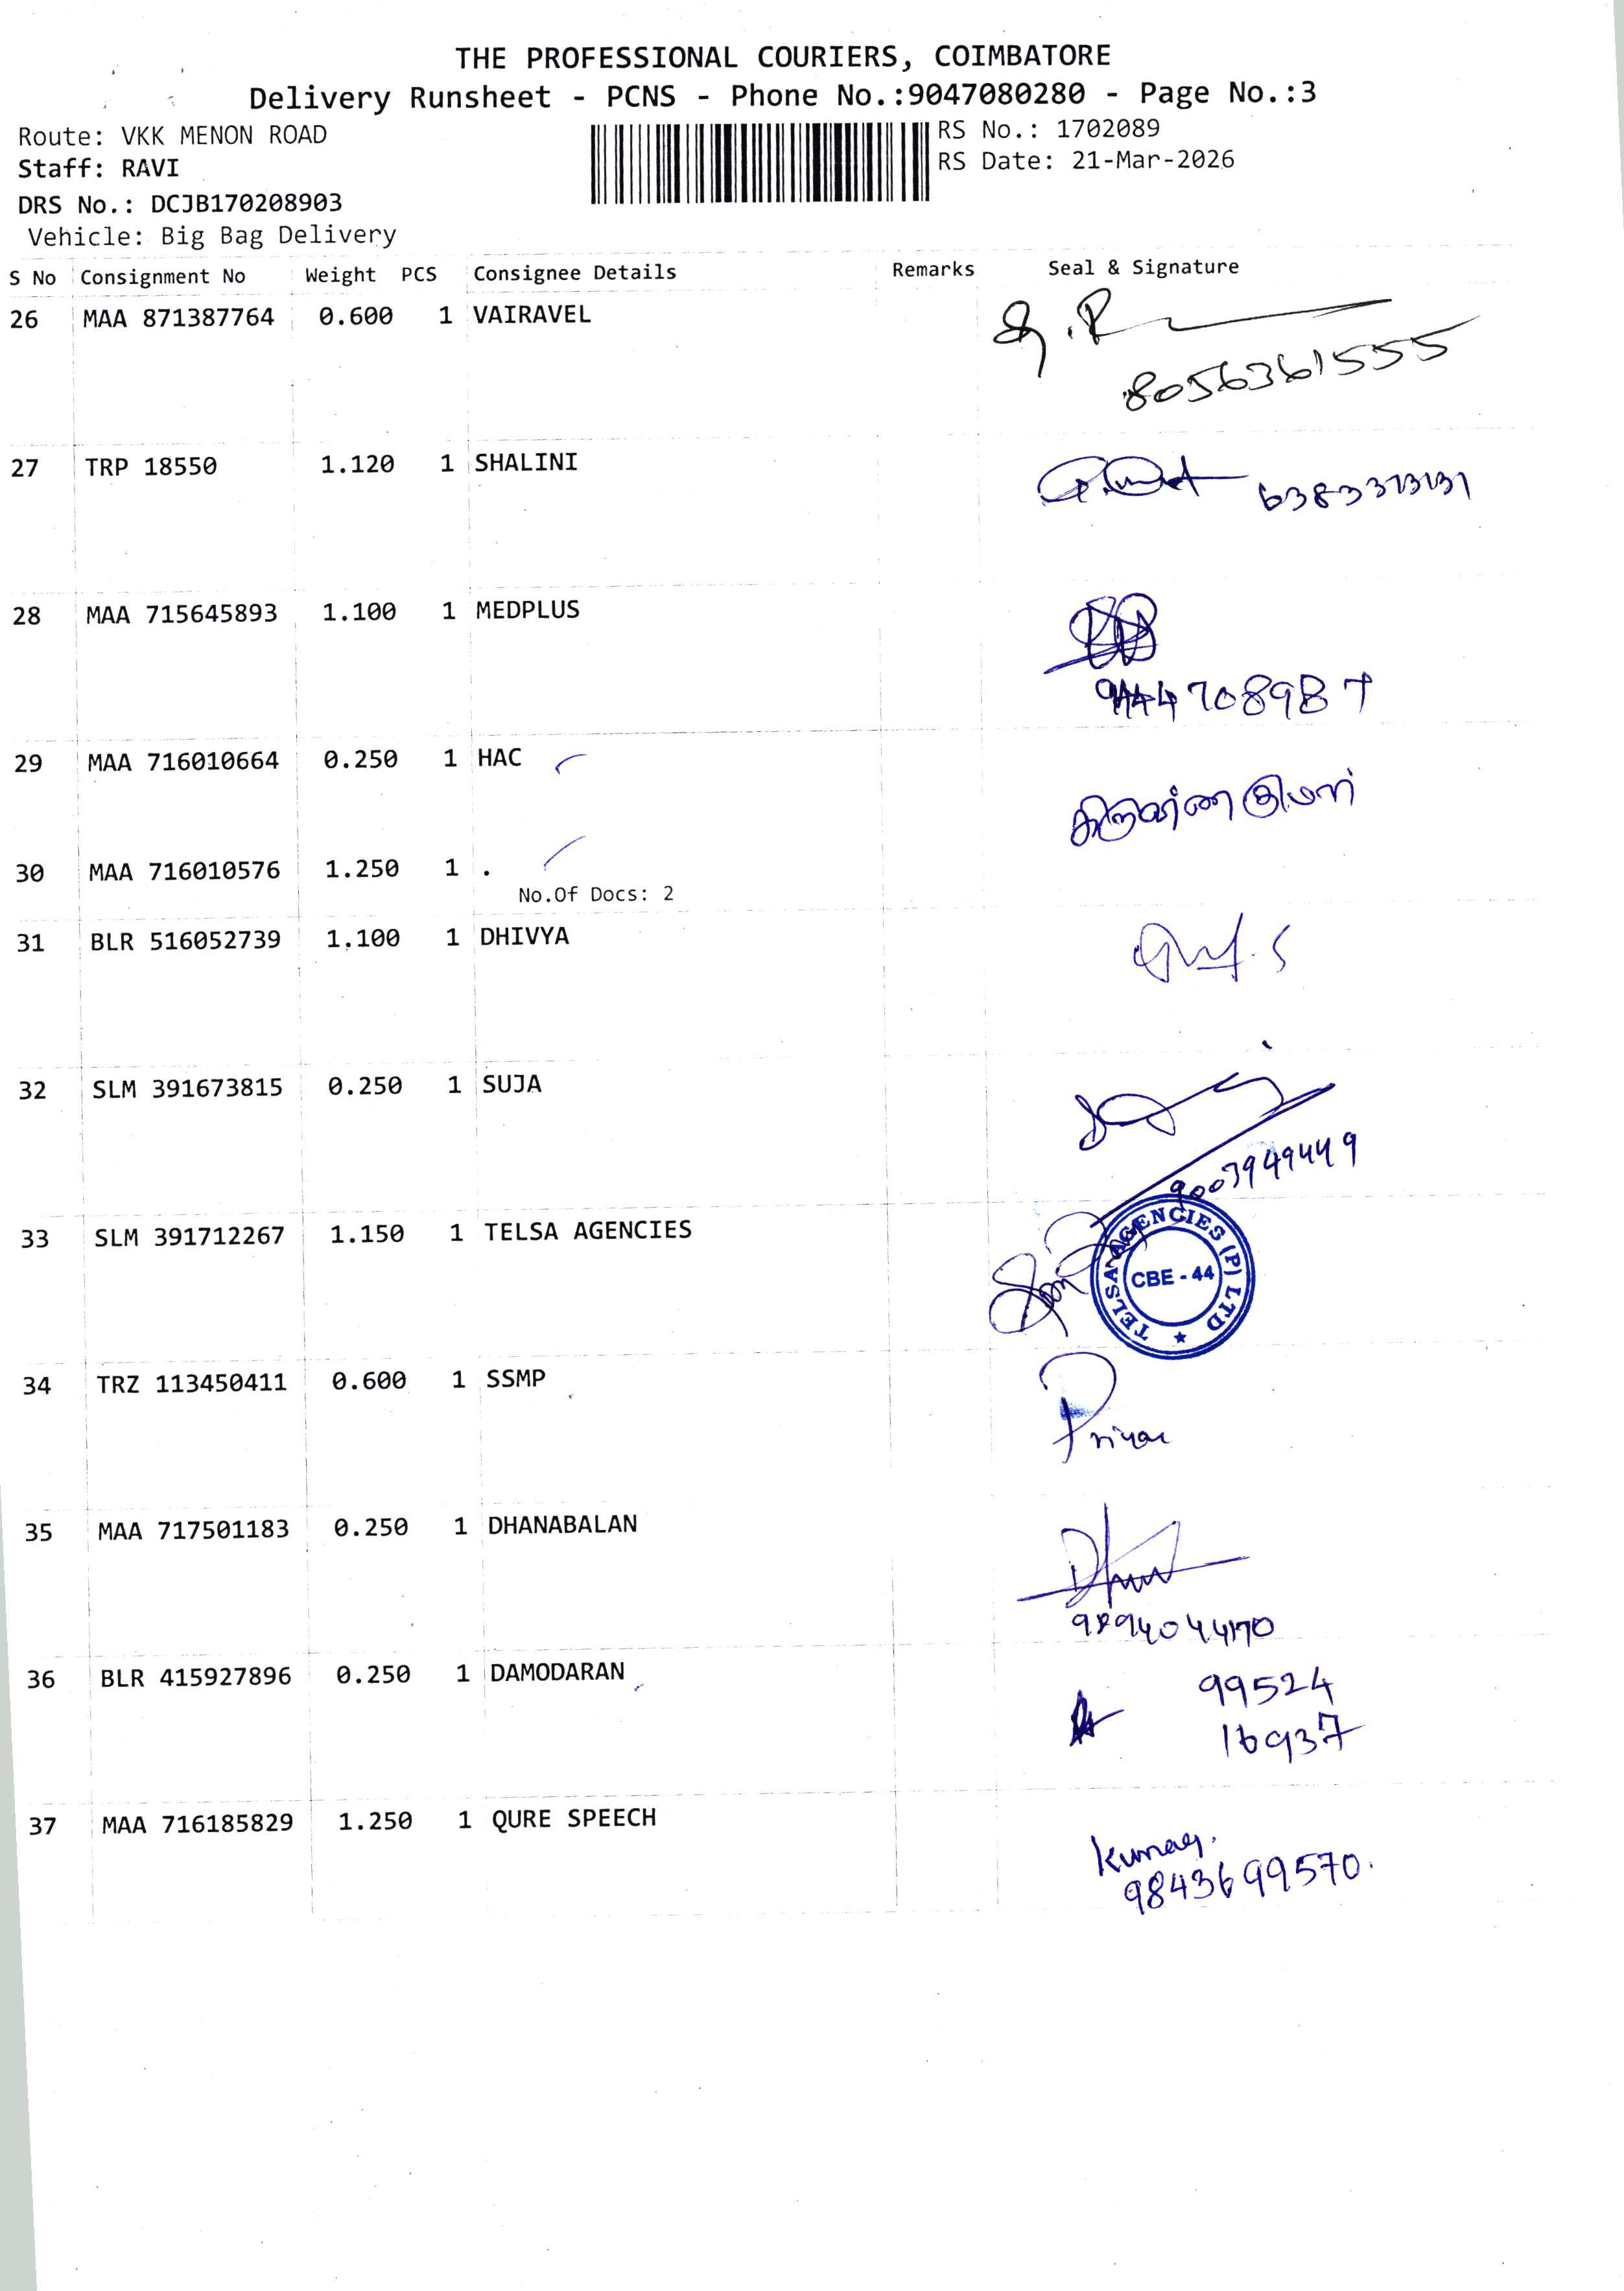 THE PROFESSIONAL COURIERS, COIMBATORE
Delivery Runsheet - PCNS - Phone No.:9047080280 - Page No.:3
Route: VKK MENON ROAD
RS No.: 1702089
Staff: RAVI
RS Date: 21-Mar-2026
DRS No.: DCJB170208903
Vehicle: Big Bag Delivery
S No Consignment No Weight PCS Consignee Details Remarks Seal & Signature
26 MAA 871387764 0.600 1 VAIRAVEL
8056361555
27 TRP 18550 1.120 1 SHALINI
28 MAA 715645893 1.100 1 MEDPLUS
29 MAA 716010664 0.250 1 HAC
30 MAA 716010576 1.250 1 .
No.Of Docs: 2
31 BLR 516052739 1.100 1 DHIVYA
32 SLM 391673815 0.250 1 SUJA
9003949449
33 SLM 391712267 1.150 1 TELSA AGENCIES
TELSA AGENCIES (P) LTD
CBE - 44
34 TRZ 113450411 0.600 1 SSMP
Priya
35 MAA 717501183 0.250 1 DHANABALAN
9894044170
36 BLR 415927896 0.250 1 DAMODARAN
99524
16937
37 MAA 716185829 1.250 1 QURE SPEECH
Kumar.
9843699570.